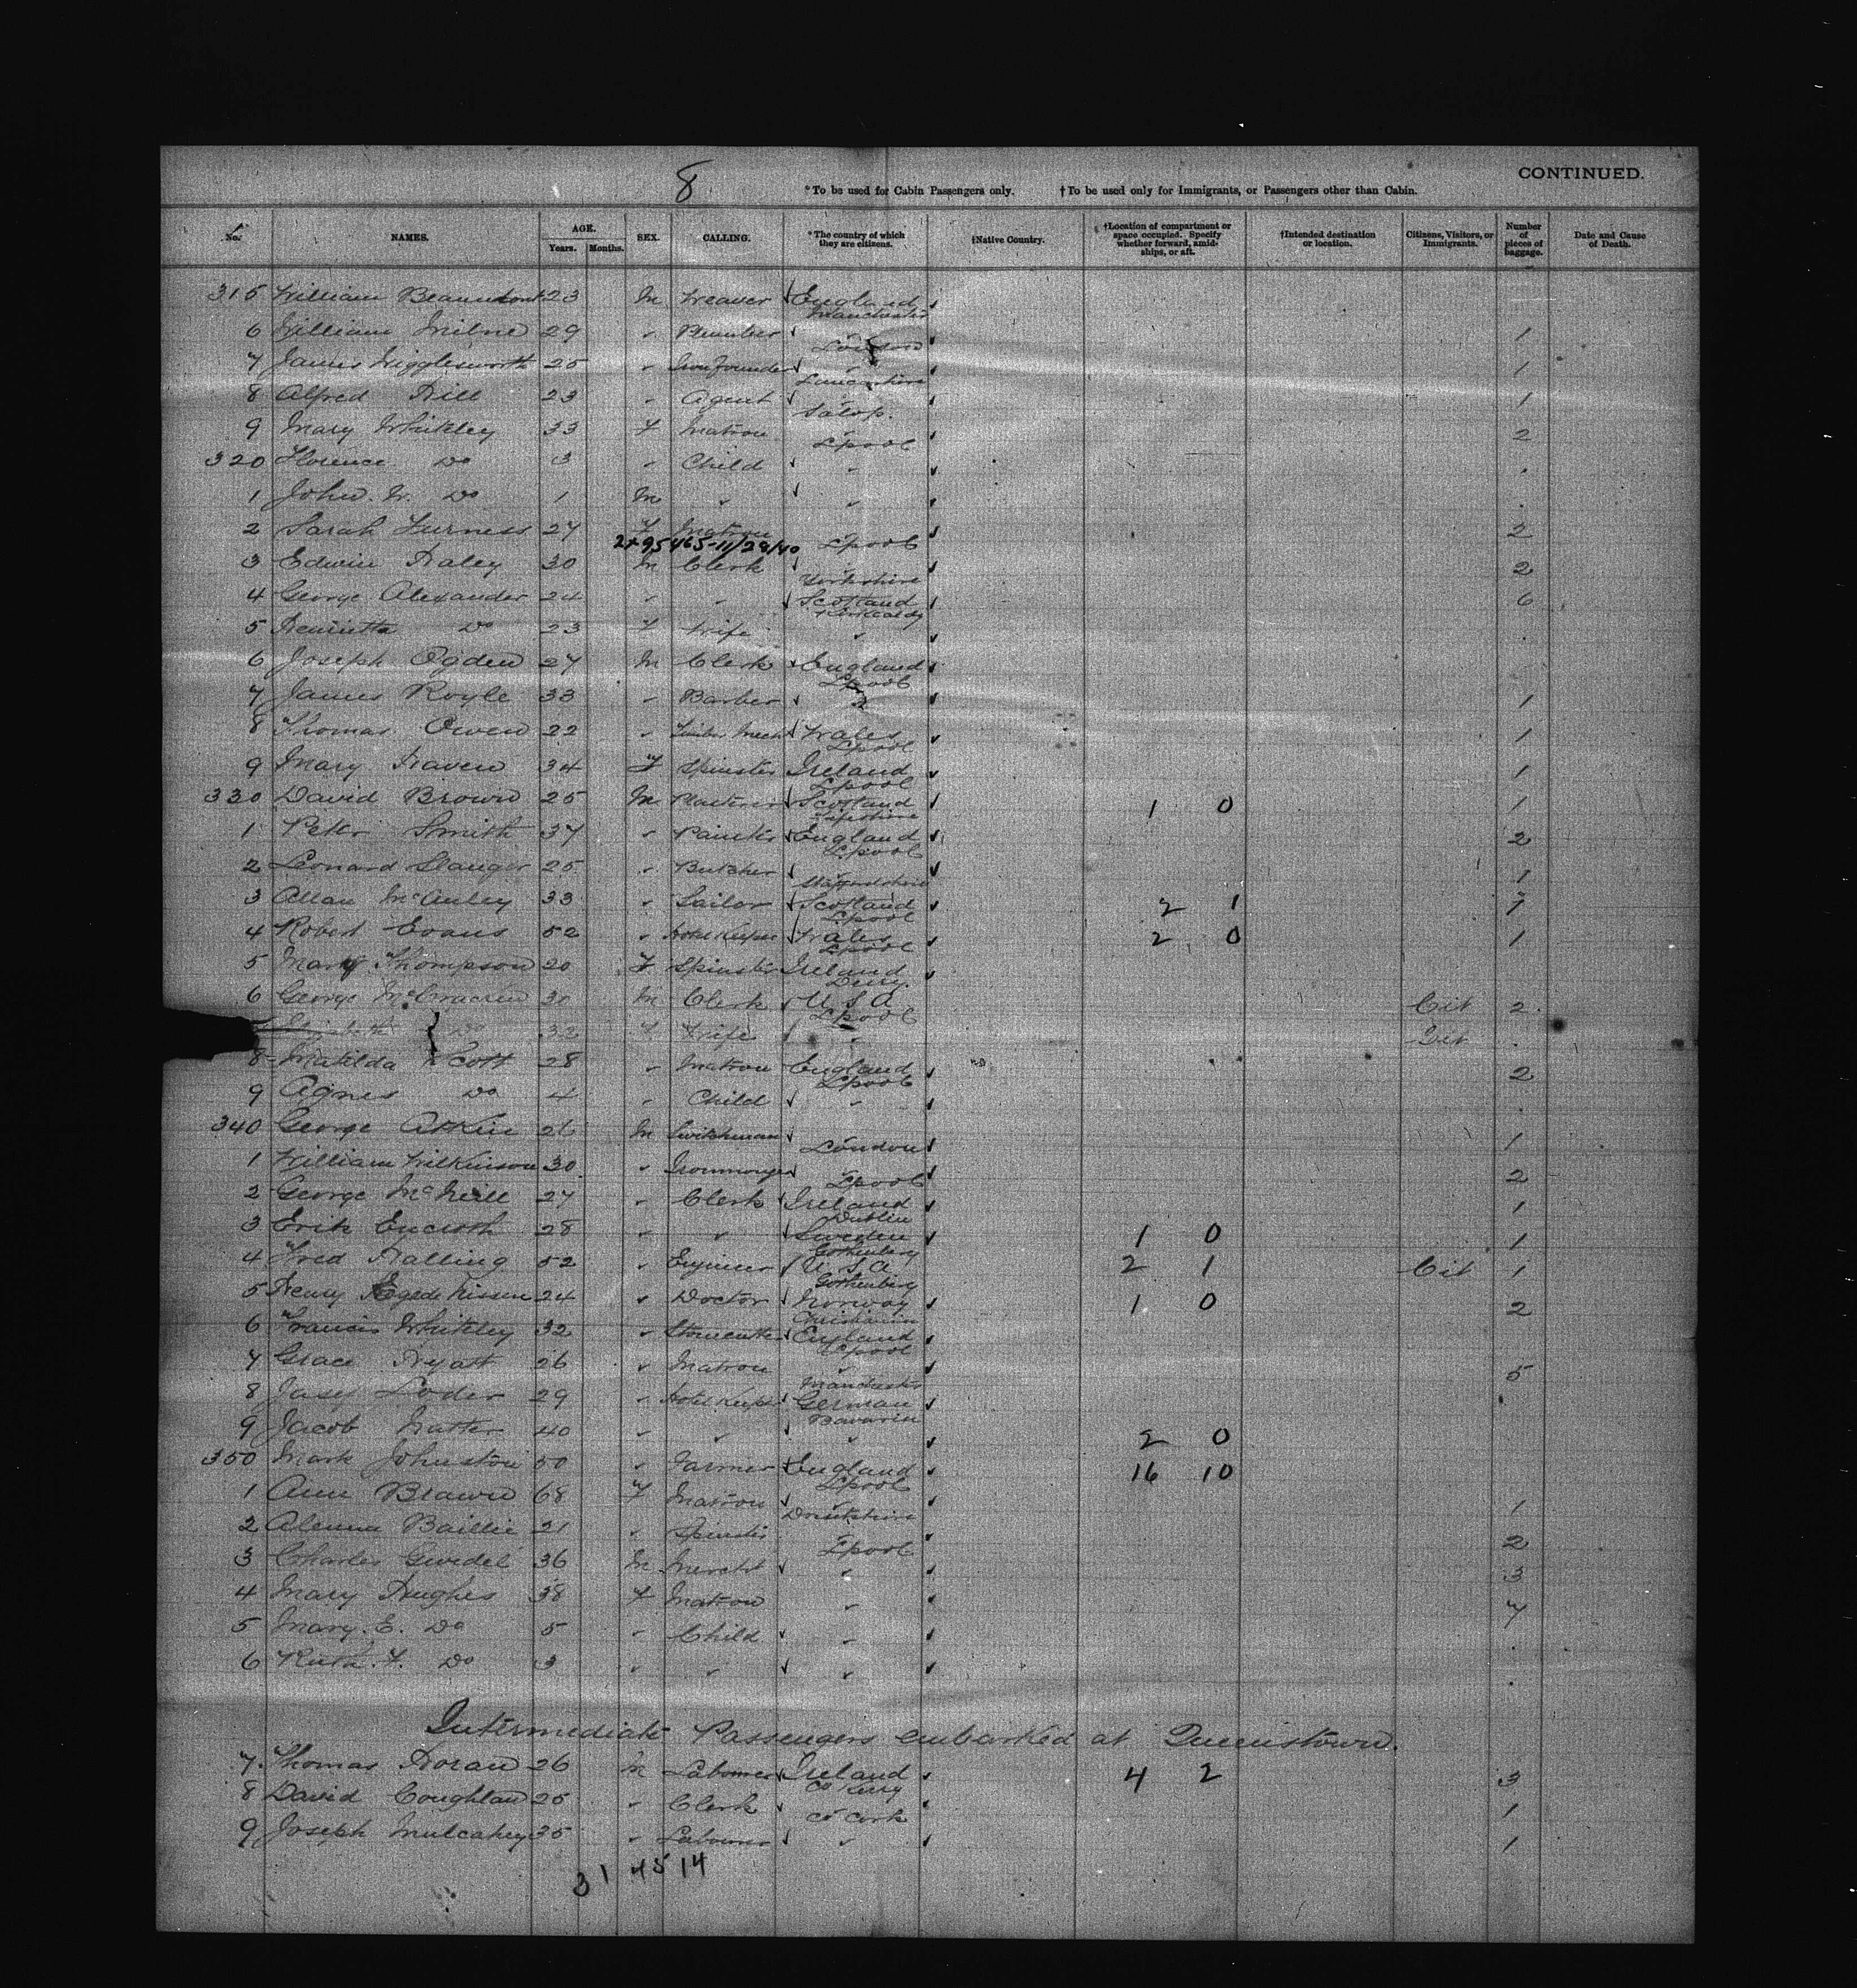 8
CONTINUED.
* To be used for Cabin Passengers only. † To be used only for Immigrants, or Passengers other than Cabin.
No. NAMES. AGE. Years. Months. SEX. CALLING. * The country of which they are citizens. † Native Country. † Location of compartment or space occupied. Specify whether forward, amidships, or aft. † Intended destination or location. Citizens, Visitors, or Immigrants. Number of pieces of baggage. Date and Cause of Death.
315 William Beaumont 23 M Weaver England
Manchester
6 William Milne 29 " Plumber " 1
London
7 James Wigglesworth 25 " Ironfounder " 1
Lancashire
8 Alfred Hill 23 " Agent " 1
Salop.
9 Mary Whitley 33 F Matron " 2
L'pool
320 Florence Do 3 " Child "
1 John. W. Do 1 M " "
2 Sarah Furness 27 F Matron " 2
2x95465-11/28/40 L'pool
3 Edwin Haley 30 M Clerk " 2
Yorkshire
4 George Alexander 24 " " Scotland 6
Kirkcaldy
5 Henrietta Do 23 F Wife "
6 Joseph Ogden 27 M Clerk England
L'pool
7 James Royle 33 " Barber " 1
8 Thomas Owen 22 " Timber Mercht Wales 1
L'pool
9 Mary Haven 34 F Spinster Ireland 1
L'pool
330 David Brown 25 M Plasterer Scotland 1 0 1
Fifeshire
1 Peter Smith 37 " Painter England 2
L'pool
2 Leonard 25 " Butcher " 1
Staffordshire
3 Allan McAuley 33 " Sailor Scotland 2 1 1
L'pool
4 Robert Evans 52 " Hotel Keeper Wales 2 0 1
L'pool
5 Mary Thompson 20 F Spinster Ireland
Derry.
6 George McCracken 30 M Clerk U S A Cit 2
L'pool
Do 32 F Wife " Cit
8 Matilda Scott 28 " Matron England 2
L'pool
9 Agnes Do 4 " Child "
340 George Atkin 26 M Switchman " 1
London
1 William Wilkinson 30 " Ironmonger " 2
L'pool
2 George McNeill 27 " Clerk Ireland 1
Dublin
3 Erik Encroth 28 " " Sweden 1 0 1
Gothenberg
4 Fred Halling 52 " Engineer U S A 2 1 Cit 1
Gothenberg
5 Henry Egede Nissen 24 " Doctor Norway 1 0 2
Christiania
6 Francis Whitley 32 " Stonecutter England
L'pool
7 Grace Hyatt 26 " Matron " 5
Manchester
8 Josef Loder 29 " Hotel Keeper German
Bavaria
9 Jacob Natter 40 " " " 2 0
350 Mark Johnston 50 " Farmer England 16 10
L'pool
1 Ann Brown 68 F Matron " 1
2 Baillie 21 " Spinster " 2
L'pool
3 Charles 36 M Mercht " 3
4 Mary Hughes 38 F Matron " 7
5 Mary. E. Do 5 " Child "
6 Ruth. F. Do 3 " " "
Intermediate Passengers embarked at Queenstown.
7 Thomas Horan 26 M Labourer Ireland 4 2 3
Co Kerry
8 David Coughlan 25 " Clerk " 1
Co Cork
9 Joseph Mulcahey 35 " Labourer " 1
31 45 14